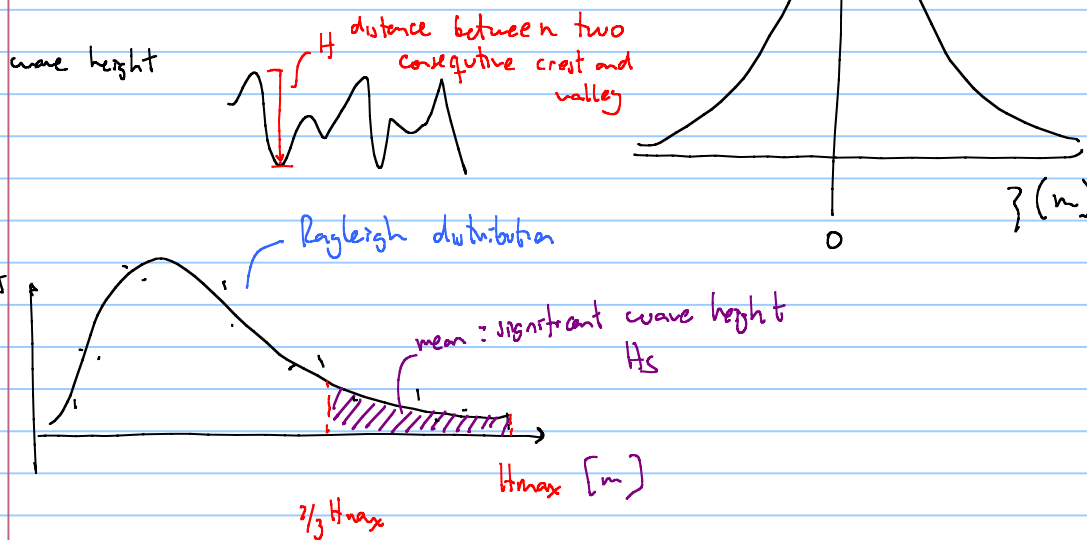 wave height
H
distance between two
consequtive crest and
valley
0
(m)
Rayleigh distribution
mean : significant wave height
Hs
Hmax [m]
2/3 Hmax